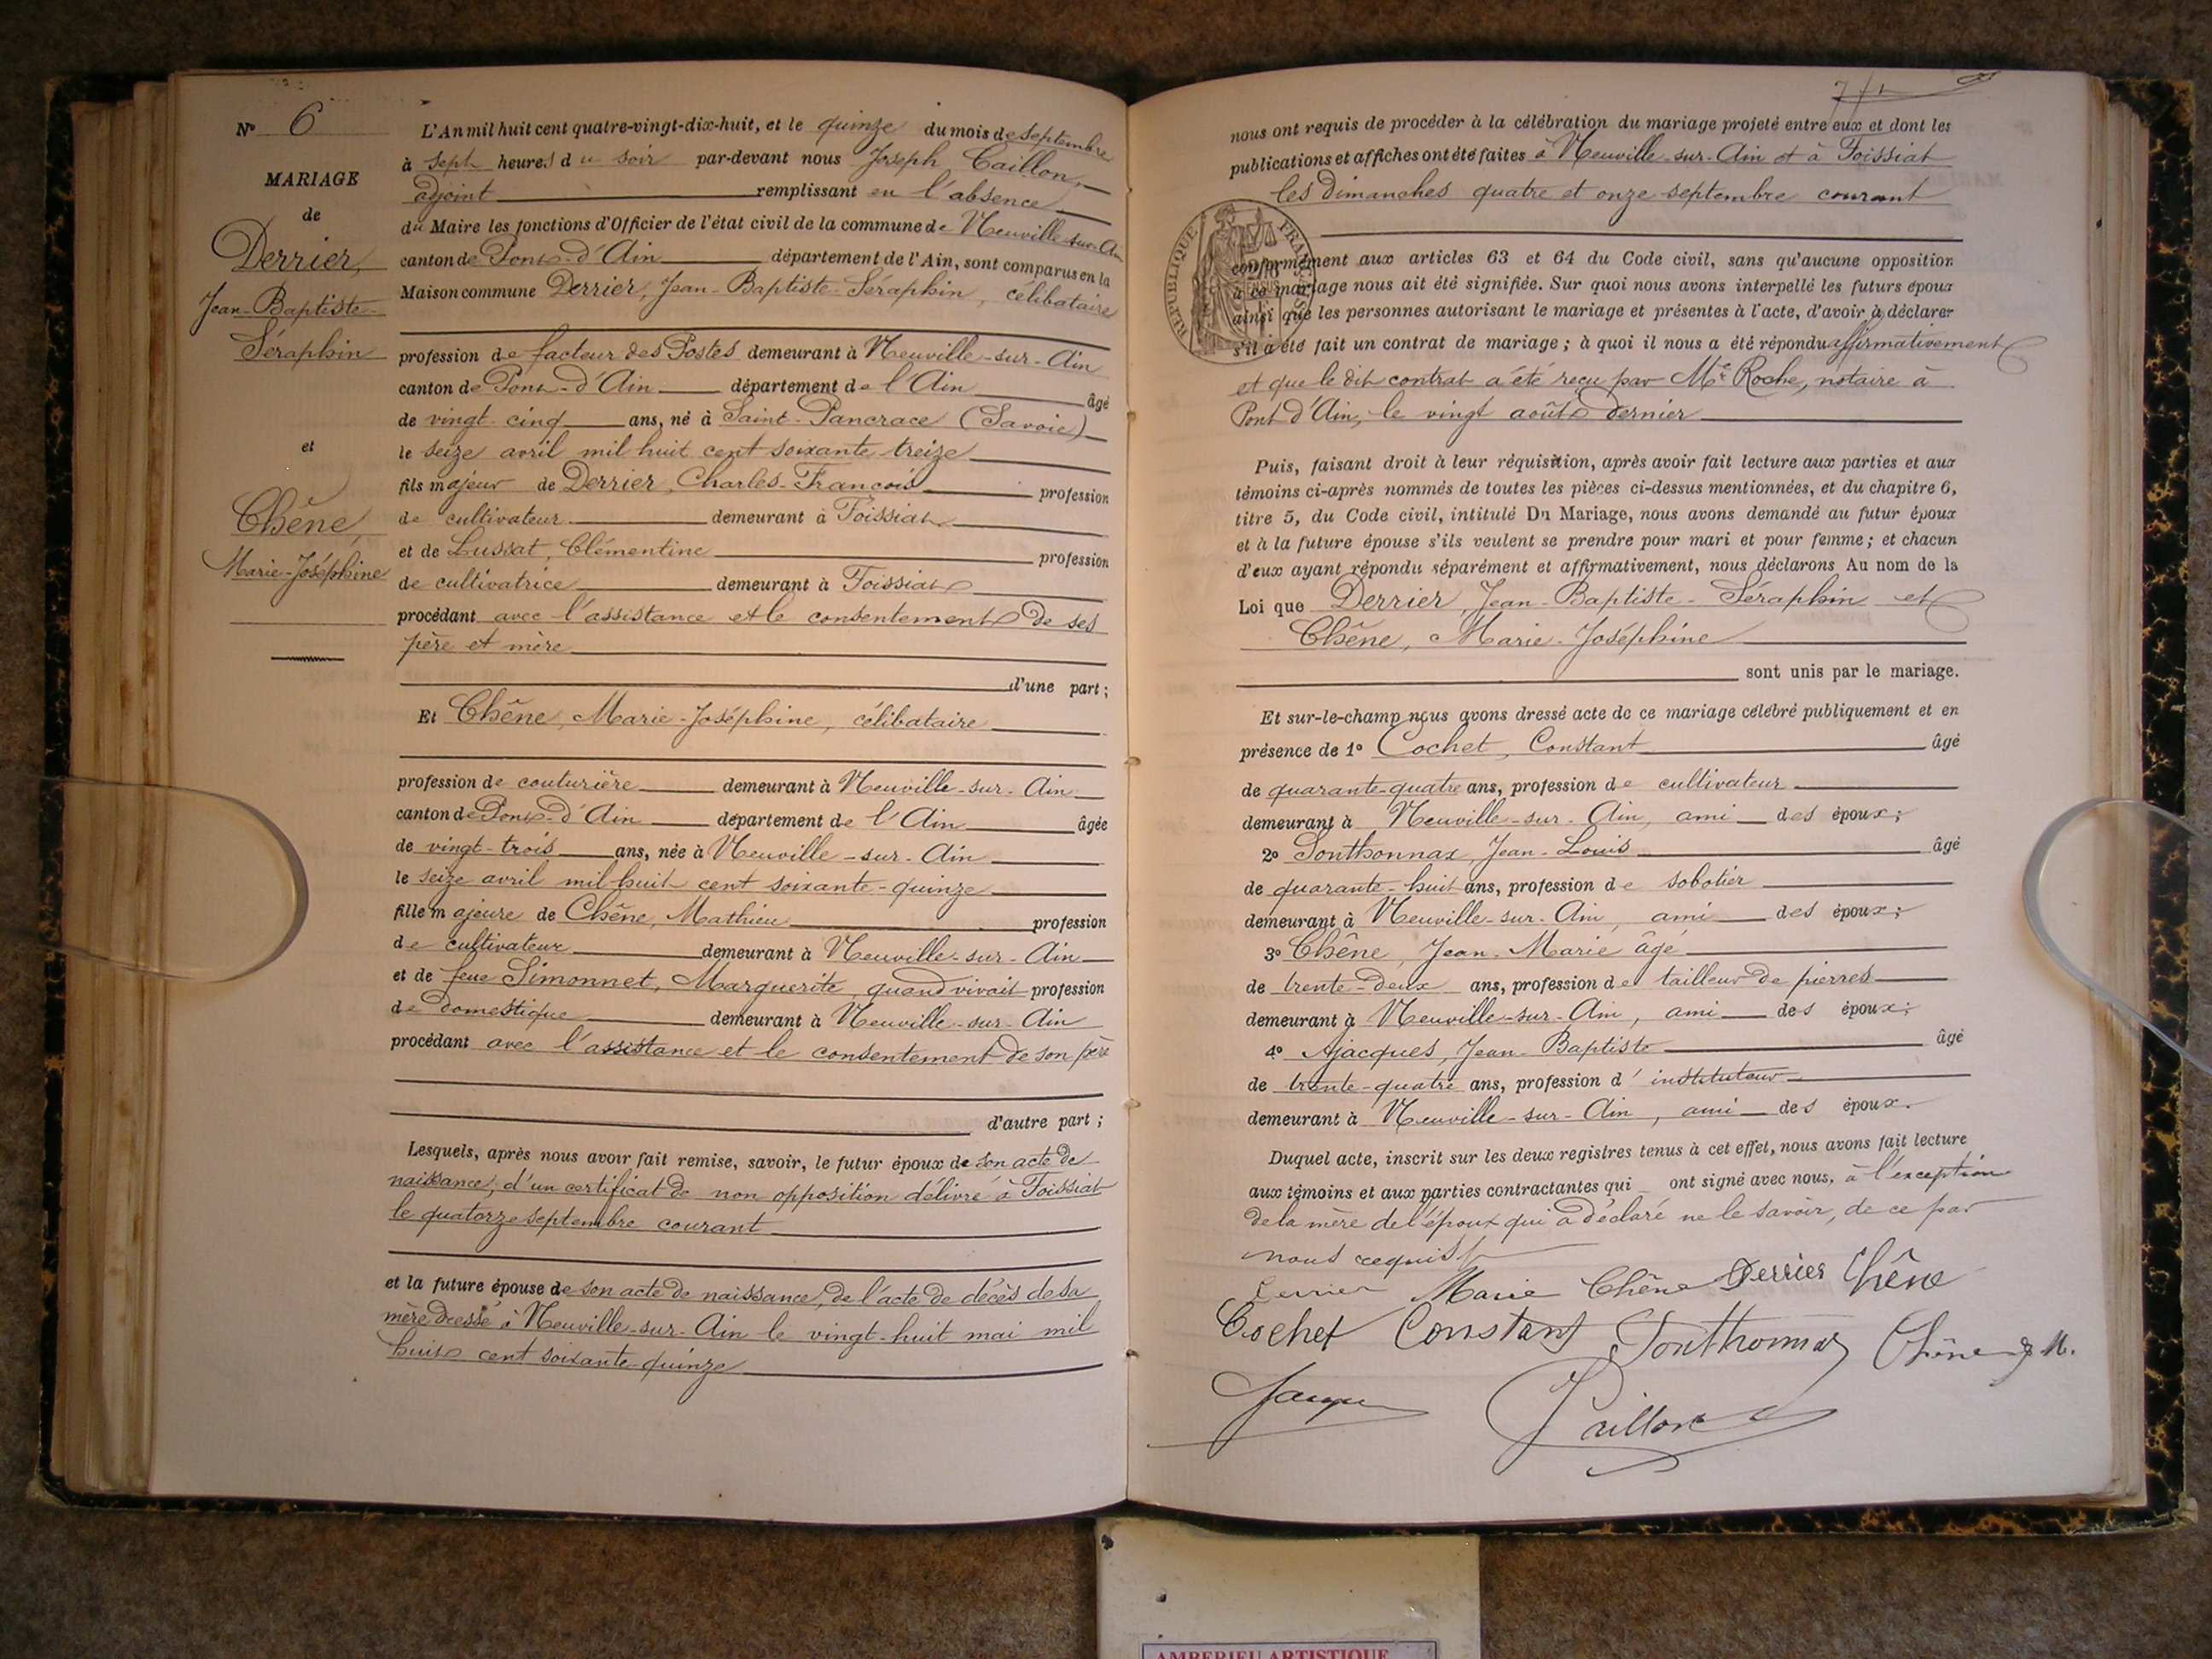 N° 6
MARIAGE
de
Derrier,
Jean-Baptiste-
Séraphin
et
Chêne,
Marie-Joséphine
L'An mil huit cent quatre-vingt-dix-huit, et le quinze du mois de septembre
à sept heures du soir par-devant nous Joseph Caillon,
adjoint remplissant en l'absence
du Maire les fonctions d'Officier de l'état civil de la commune de Neuville-sur-Ain
canton de Pont-d'Ain département de l'Ain, sont comparus en la
Maison commune Derrier, Jean-Baptiste-Séraphin, célibataire
profession de facteur des Postes demeurant à Neuville-sur-Ain
canton de Pont-d'Ain département de l'Ain âgé
de vingt-cinq ans, né à Saint-Pancrace (Savoie)
le seize avril mil huit cent soixante-treize
fils majeur de Derrier, Charles-François profession
de cultivateur demeurant à Foissiat
et de Lussat, Clémentine profession
de cultivatrice demeurant à Foissiat
procédant avec l'assistance et le consentement de ses
père et mère
d'une part;
Et Chêne, Marie-Joséphine, célibataire
profession de couturière demeurant à Neuville-sur-Ain
canton de Pont-d'Ain département de l'Ain âgée
de vingt-trois ans, née à Neuville-sur-Ain
le seize avril mil huit cent soixante-quinze
fille majeure de Chêne, Mathieu profession
de cultivateur demeurant à Neuville-sur-Ain
et de feue Simonnet, Marguerite, quand vivait profession
de domestique demeurant à Neuville-sur-Ain
procédant avec l'assistance et le consentement de son père
d'autre part;
Lesquels, après nous avoir fait remise, savoir, le futur époux de son acte de
naissance, d'un certificat de non opposition délivré à Foissiat
le quatorze septembre courant
et la future épouse de son acte de naissance, de l'acte de décès de sa
mère dressé à Neuville-sur-Ain le vingt-huit mai mil
huit cent soixante-quinze
nous ont requis de procéder à la célébration du mariage projeté entre eux et dont les
publications et affiches ont été faites à Neuville-sur-Ain et à Foissiat
les dimanches quatre et onze septembre courant
RÉPUBLIQUE FRANÇAISE
conformément aux articles 63 et 64 du Code civil, sans qu'aucune opposition
à ce mariage nous ait été signifiée. Sur quoi nous avons interpellé les futurs époux
ainsi que les personnes autorisant le mariage et présentes à l'acte, d'avoir à déclarer
s'il a été fait un contrat de mariage; à quoi il nous a été répondu affirmativement
et que le dit contrat a été reçu par Me Roche, notaire à
Pont d'Ain, le vingt août dernier
Puis, faisant droit à leur réquisition, après avoir fait lecture aux parties et aux
témoins ci-après nommés de toutes les pièces ci-dessus mentionnées, et du chapitre 6,
titre 5, du Code civil, intitulé Du Mariage, nous avons demandé au futur époux
et à la future épouse s'ils veulent se prendre pour mari et pour femme; et chacun
d'eux ayant répondu séparément et affirmativement, nous déclarons Au nom de la
Loi que Derrier, Jean-Baptiste-Séraphin et
Chêne, Marie-Joséphine
sont unis par le mariage.
Et sur-le-champ nous avons dressé acte de ce mariage célébré publiquement et en
présence de 1° Cochet, Constant âgé
de quarante-quatre ans, profession de cultivateur
demeurant à Neuville-sur-Ain, ami des époux;
2° Sonthonnax, Jean-Louis âgé
de quarante-huit ans, profession de sabotier
demeurant à Neuville-sur-Ain, ami des époux;
3° Chêne, Jean-Marie âgé
de trente-deux ans, profession de tailleur de pierres
demeurant à Neuville-sur-Ain, ami des époux;
4° Ajacques, Jean-Baptiste âgé
de trente-quatre ans, profession d'instituteur
demeurant à Neuville-sur-Ain, ami des époux.
Duquel acte, inscrit sur les deux registres tenus à cet effet, nous avons fait lecture
aux témoins et aux parties contractantes qui ont signé avec nous, à l'exception
de la mère de l'époux qui a déclaré ne le savoir, de ce par
nous requise
Derrier Marie Chêne Derrier Chêne
Cochet Constant Sonthonnax Chêne J. M.
Caillon
AMBERIEU ARTISTIQUE